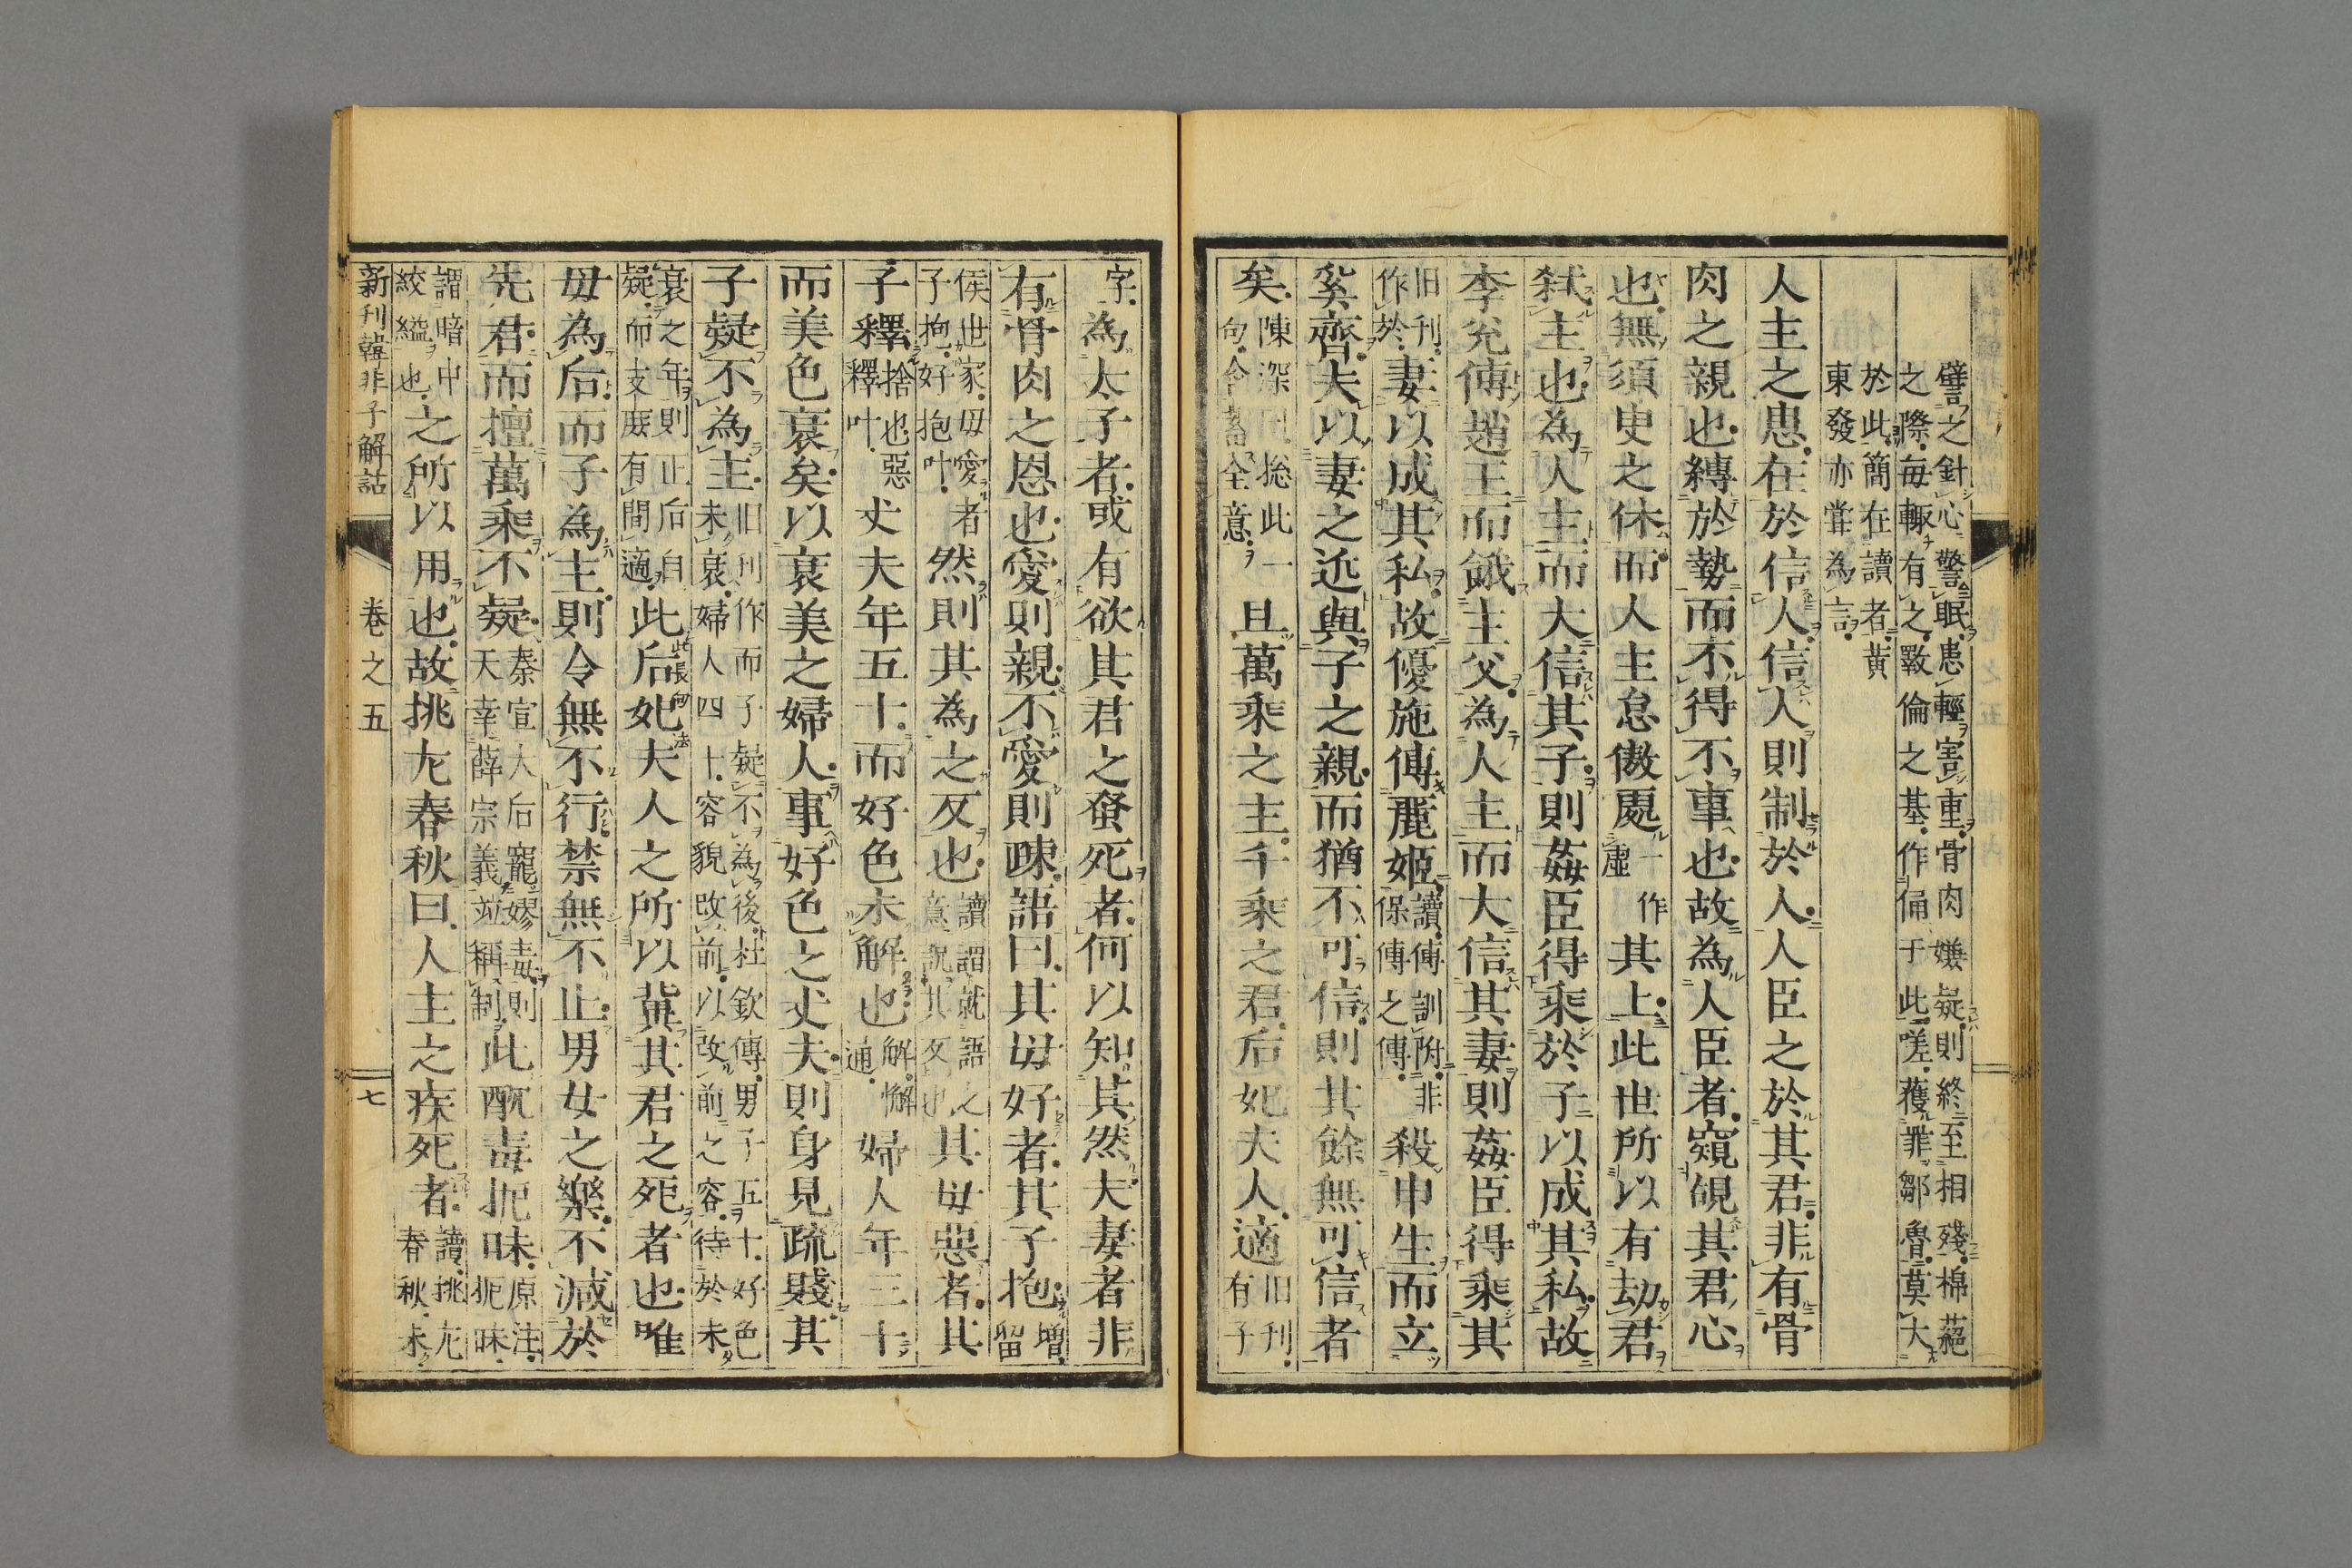 譬之針心警眠患輕害重骨肉嫌疑則終至相殘棉蕝
之際毎輙有之斁倫之基作俑于此嗟蒦罪鄒魯莫大
於此簡在讀者黃
東發亦嘗為言
人主之患在於信人信人則制於人人臣之於其君非有骨
肉之親也縛於勢而不得不事也故為人臣者窺覘其君心
也無須臾之休而人主怠傲處一作虛其上此世所以有劫君
弒主也為人主而大信其子則姦臣得乘於子以成其私故
李兌傅趙王而餓主父為人主而大信其妻則姦臣得乘其
旧刊作於妻以成其私故優施傅麗姬讀傅訓附非保傅之傅殺申生而立
奚齊夫以妻之近與子之親而猶不可信則其餘無可信者
矣陳深曰総此一句含蓄全意且萬乘之主千乘之君后妃夫人適旧刊有子
字為太子者或有欲其君之蚤死者何以知其然夫妻者非
有骨肉之恩也愛則親不愛則疎語曰其母好者其子抱増留
侯世家母愛者子抱好抱叶然則其為之反也讀謂就語之意説其反也其母惡者其
子釋捨也惡釋叶丈夫年五十而好色未解也解懈通婦人年三十
而美色衰矣以衰美之婦人事好色之丈夫則身見疏賤其
子疑不為主旧刊作而子疑不為後杜欽傳男子五十好色未衰婦人四十容貌改前以改前之容待於未
衰之年則止后自疑而支庶有間適此后妃此長句法夫人之所以冀其君之死者也唯
母為后而子為主則令無不行禁無不止男女之樂不減於
先君而擅萬乘不疑秦宣太后寵嫪毐則天幸薛宗義並稱制此酖毒扼昧原注扼昧
謂暗中絞縊也之所以用也故挑左春秋曰人主之疾死者讀挑左春秋未
新刊韓非子解詁 卷之五 七